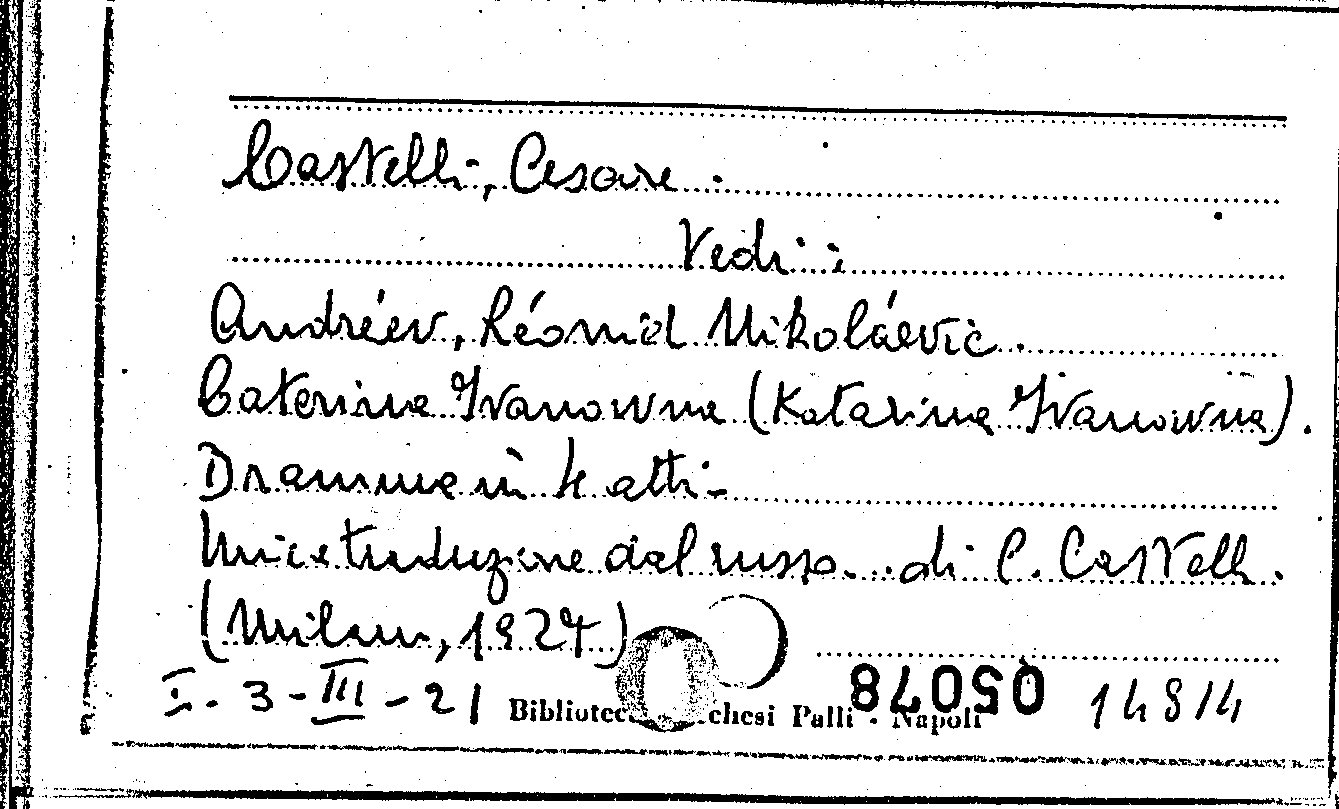 Castelli, Cesare.
Vedi:
Andréev, Léonid Nikoláevic.
Caterina Ivanowna (Katarina Ivanowna).
Dramma in 4 atti-
Unica traduzione dal russo di C. Castelli.
(Milano, 1924)
I.-3-III-21
Bibliotec chesi Palli - Napoli
05078
14814